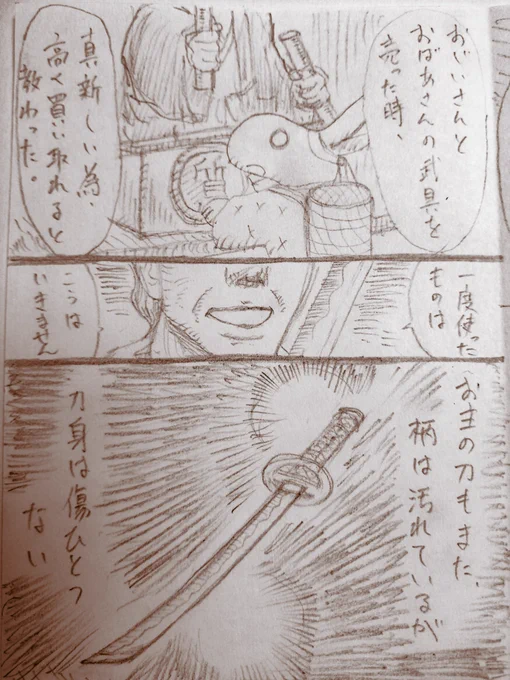 おじいさんと
おばあさんの武具を
売った時、
真新しい為、
高く買い取れると
教わった。
一度使った
ものは
こうは
いきません
お主の刀もまた、
柄は汚れているが
刀身は傷ひとつ
ない